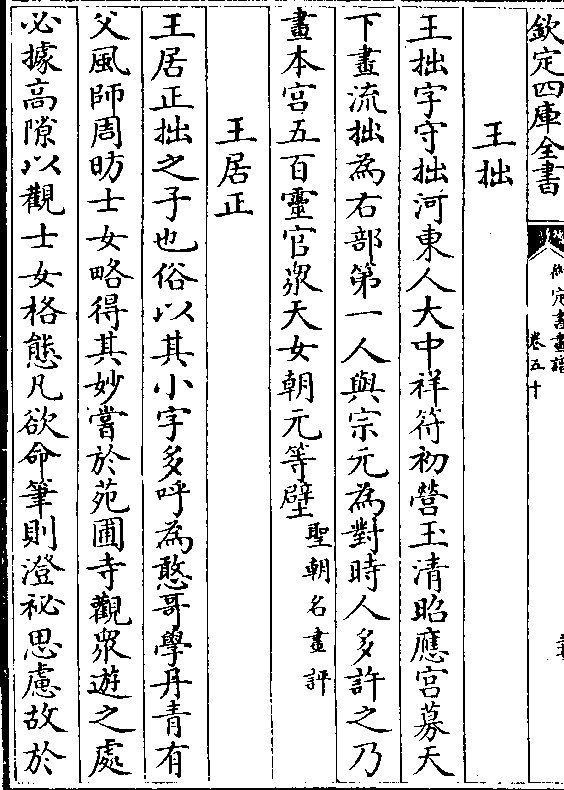 欽定四庫全書
御定書畫譜
卷五十
王拙
王拙字守拙河東人大中祥符初營玉清昭應宮募天
下畫流拙為右部第一人與宗元為對時人多許之乃
畫本宮五百靈官眾天女朝元等壁聖朝名畫評
王居正
王居正拙之子也俗以其小字多呼為憨哥學丹青有
父風師周昉士女略得其妙嘗於苑圃寺觀眾遊之處
必據高隙以觀士女格態凡欲命筆則澄祕思慮故於